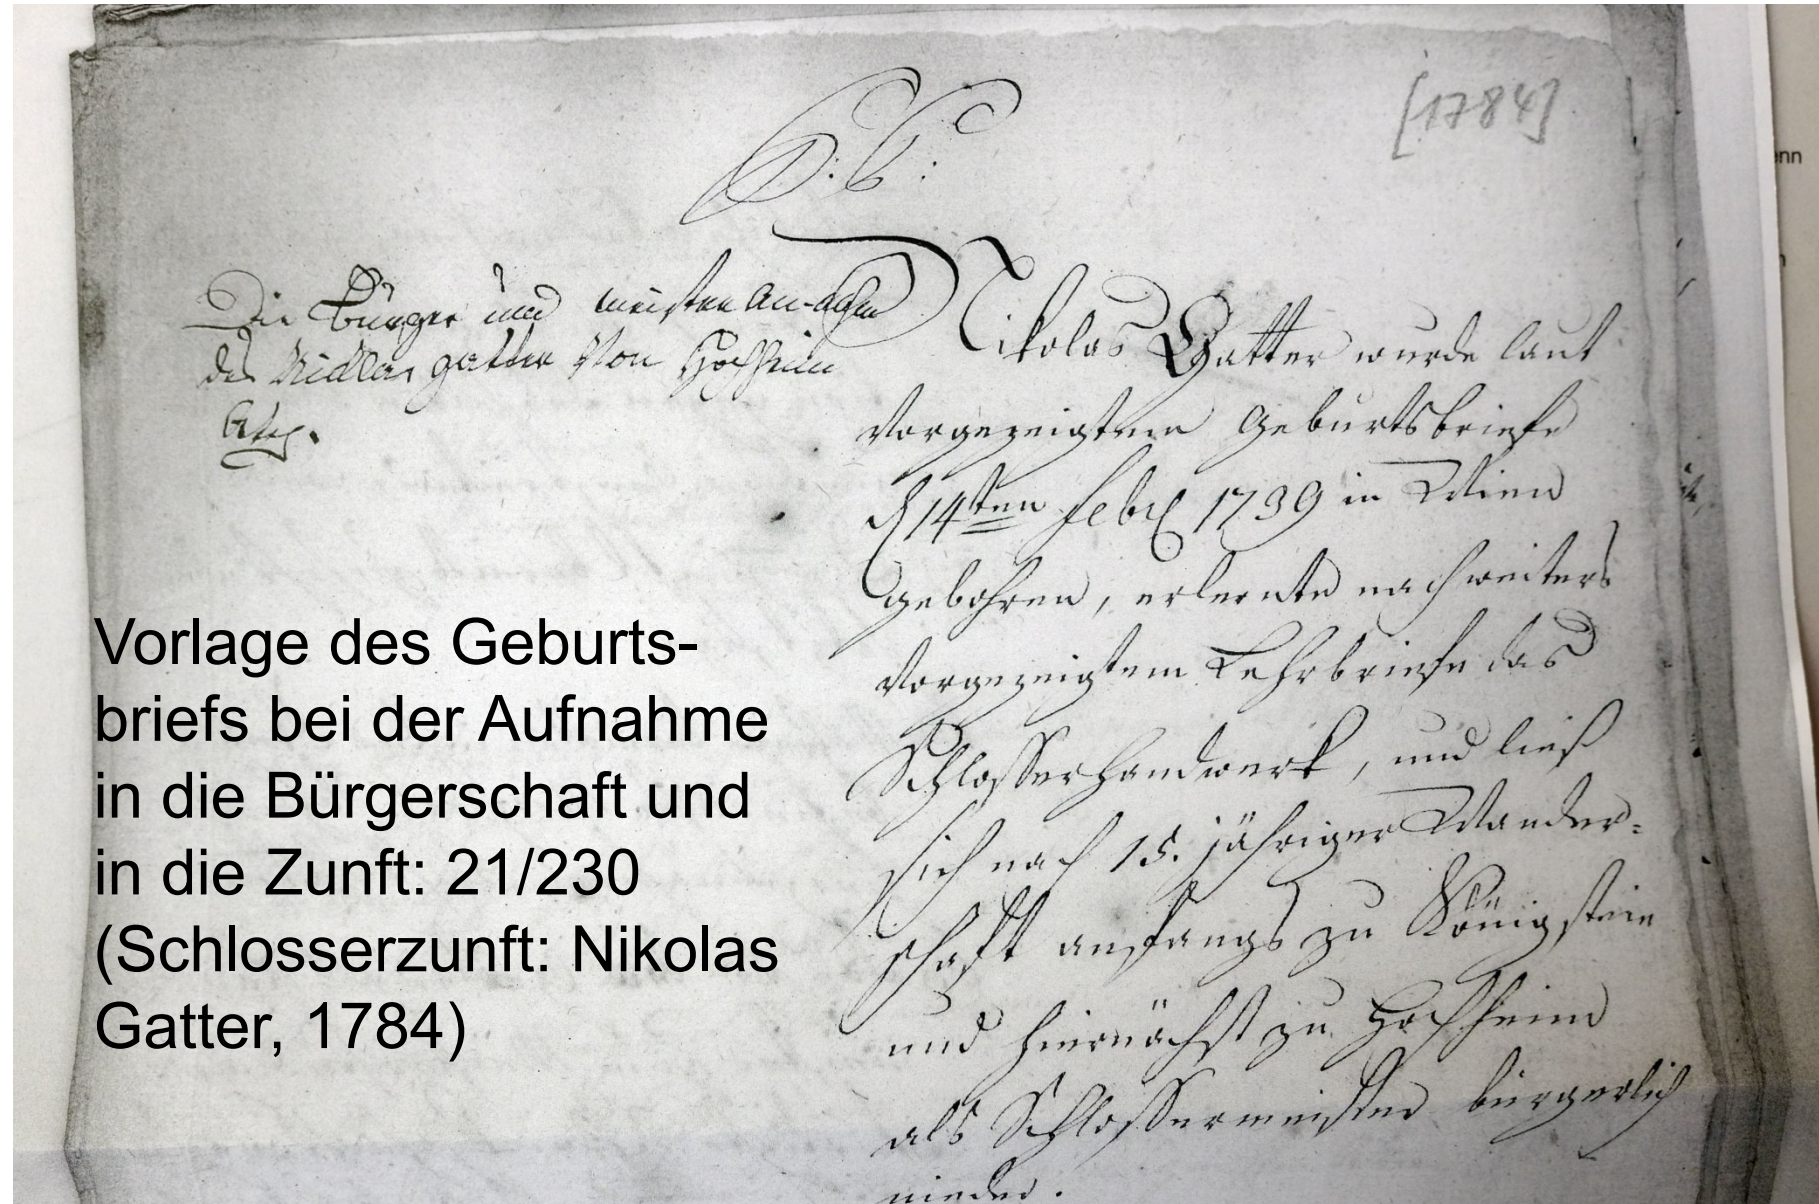 [1784]
P: C:
Die Bürger und meister an-
des Nicklas gatter Von Hofheim
Nikolas Gatter wurde laut
vorgezeigtem Geburtsbriefe
d 14ten Febr 1739 in Wien
gebohren, erlernte nach weiters
vorgezeigtem Lehrbriefe das
Schlosserhandwerk, und ließ
sich nach 15. jähriger Wander-
schaft anfangs zu Königstein
und hiernächst zu Hofheim
als Schlossermeister bürgerlich
nieder.
Vorlage des Geburts-
briefs bei der Aufnahme
in die Bürgerschaft und
in die Zunft: 21/230
(Schlosserzunft: Nikolas
Gatter, 1784)